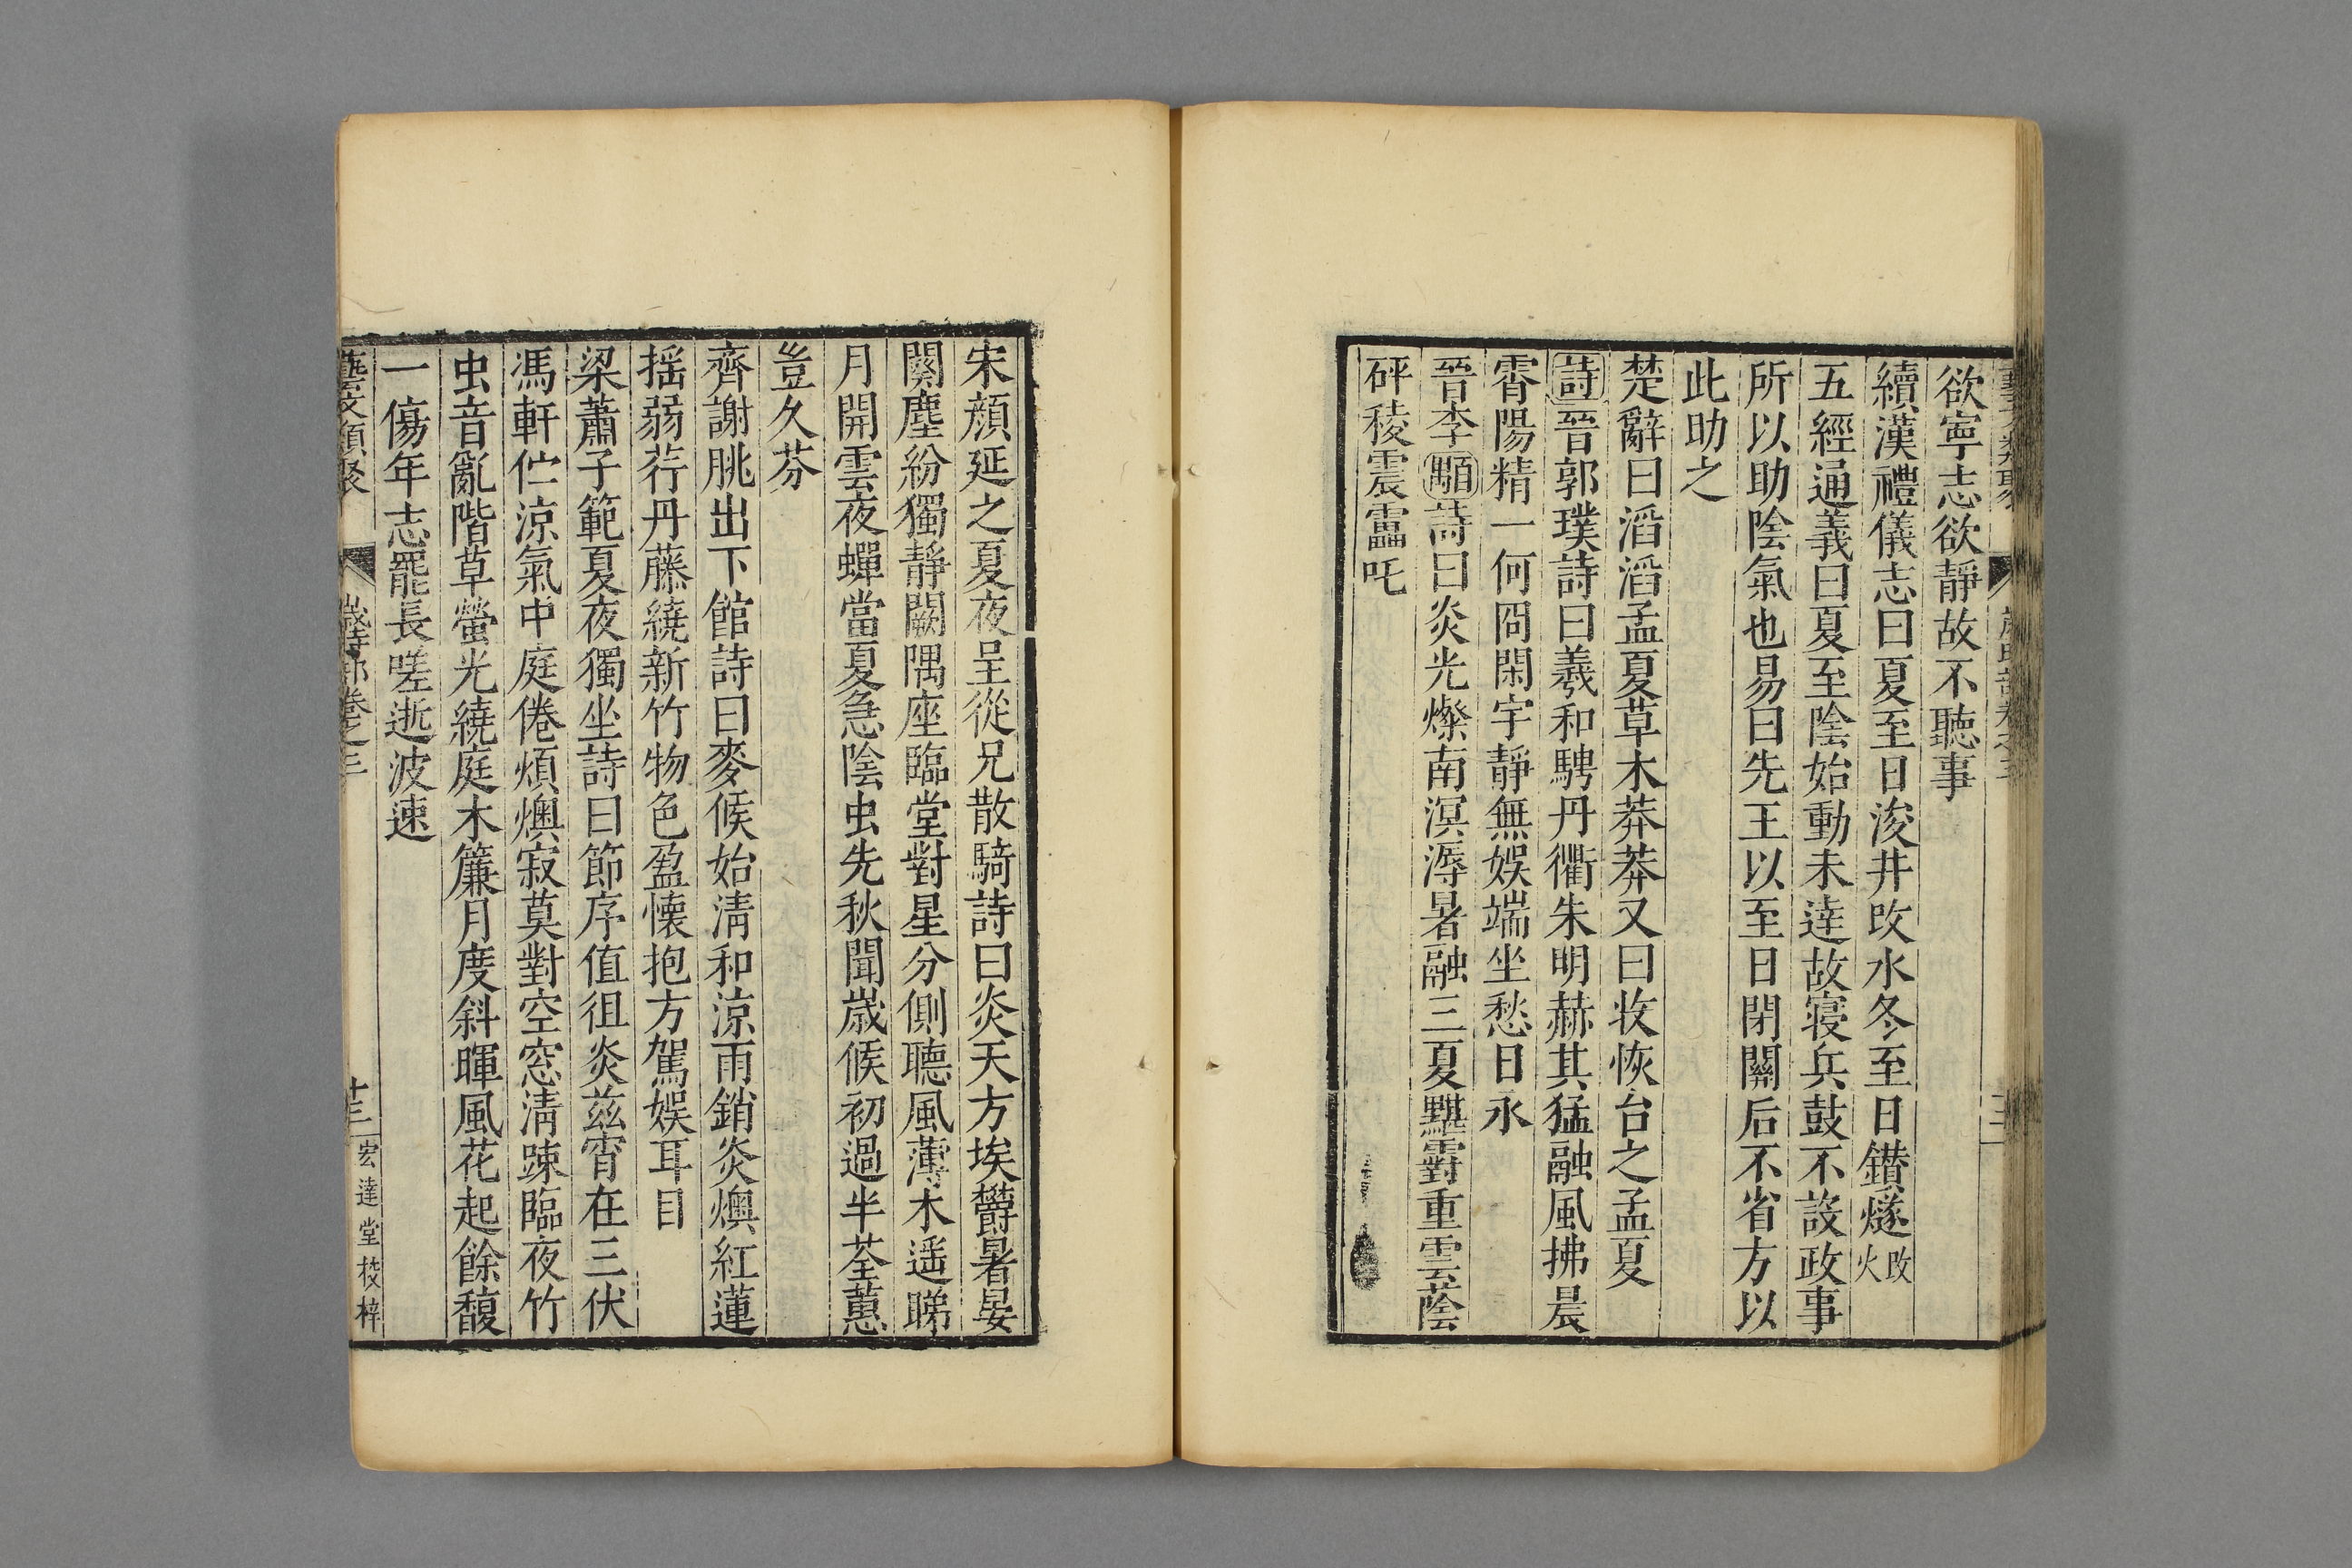 欲寧志欲靜故不聽事
續漢禮儀志曰夏至日浚井改水冬至日鑚燧改火
五經通義曰夏至陰始動未達故寝兵鼓不設政事
所以助陰氣也易曰先王以至日閉關后不省方以
此助之
楚辭曰滔滔孟夏草木莽莽又曰收恢台之孟夏
詩晉郭璞詩曰羲和騁丹衢朱明赫其猛融風拂晨
霄陽精一何冏閑宇靜無娱端坐愁日永
晉李顒詩曰炎光燦南溟溽暑融三夏黮霨重雲蔭
砰稜震靁吒
宋顔延之夏夜呈從兄散騎詩曰炎天方埃欝暑晏
闋塵紛獨靜闕隅座臨堂對星分側聽風薄木遥睇
月開雲夜蟬當夏急陰虫先秋聞歲候初過半荃蕙
豈久芬
齊謝朓出下館詩曰麥候始清和涼雨銷炎燠紅蓮
揺弱荇丹藤繞新竹物色盈懐抱方駕娱耳目
梁蕭子範夏夜獨坐詩曰節序值徂炎兹宵在三伏
馮軒伫涼氣中庭倦煩燠寂莫對空窓清踈臨夜竹
虫音亂階草螢光繞庭木簾月度斜暉風花起餘馥
一傷年志罷長嗟逝波速
藝文類聚 歲時部卷之三 十三 宏達堂校梓